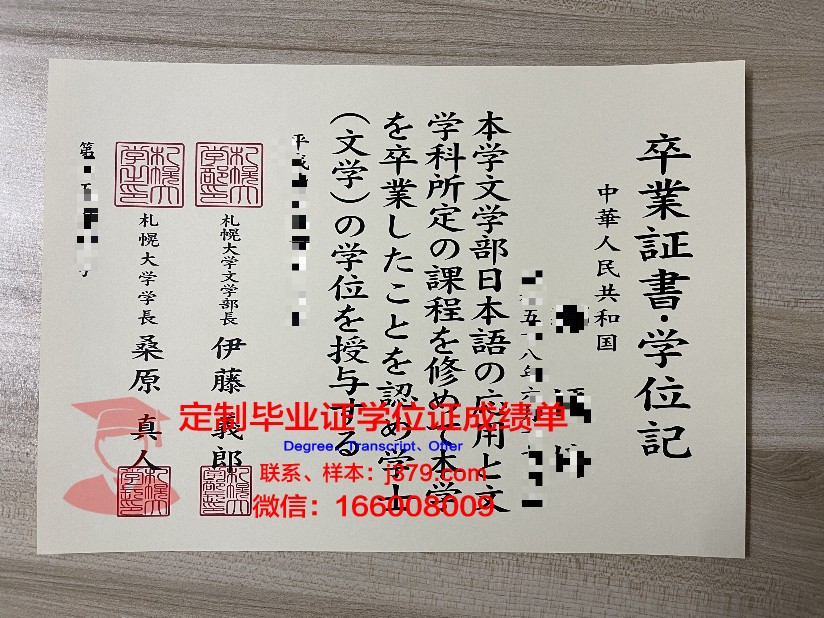 卒業証書・学位記
中華人民共和国
本学文学部日本語の応用と文
学科所定の課程を修めて本学
を卒業したことを認め学士
(文学)の学位を授与する
平成
札幌大学文学部長 伊藤義郎
札幌大学学長 桑原真人
第
定制毕业证学位证成绩单
Degree、Transcript、Offer
联系、样本：j379.com
微信：166008009